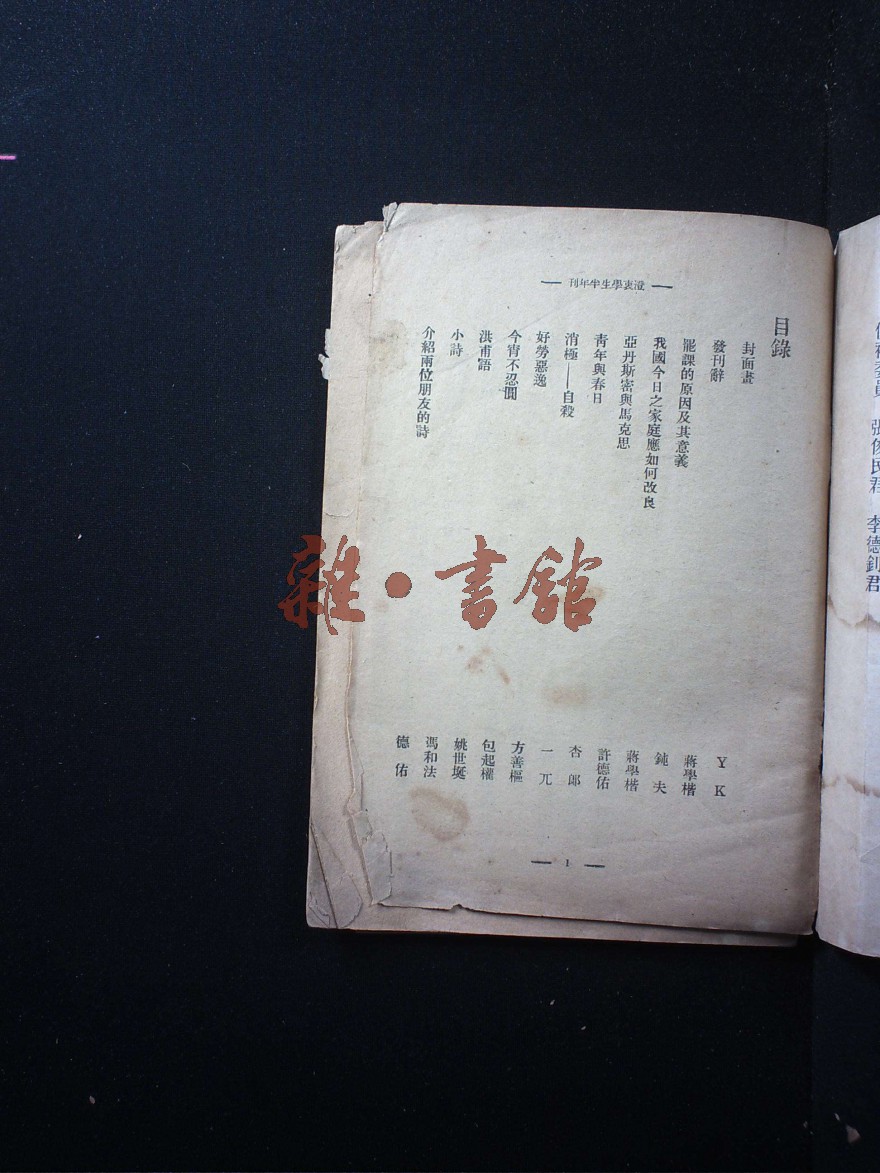 澄衷學生半年刊
目錄
封面畫 Y K
發刊辭 蔣學楷
罷課的原因及其意義 鈍夫
我國今日之家庭應如何改良 蔣學楷
亞丹斯密與馬克思 許德佑
靑年與春日 杏郎
消極——自殺 一兀
好勞惡逸 方善樞
今宵不忍 包起權
洪甫語 姚世
小詩 馮和法
介紹兩位朋友的詩 德佑
1
委員 張俊民君 李德釗君
雜·書館